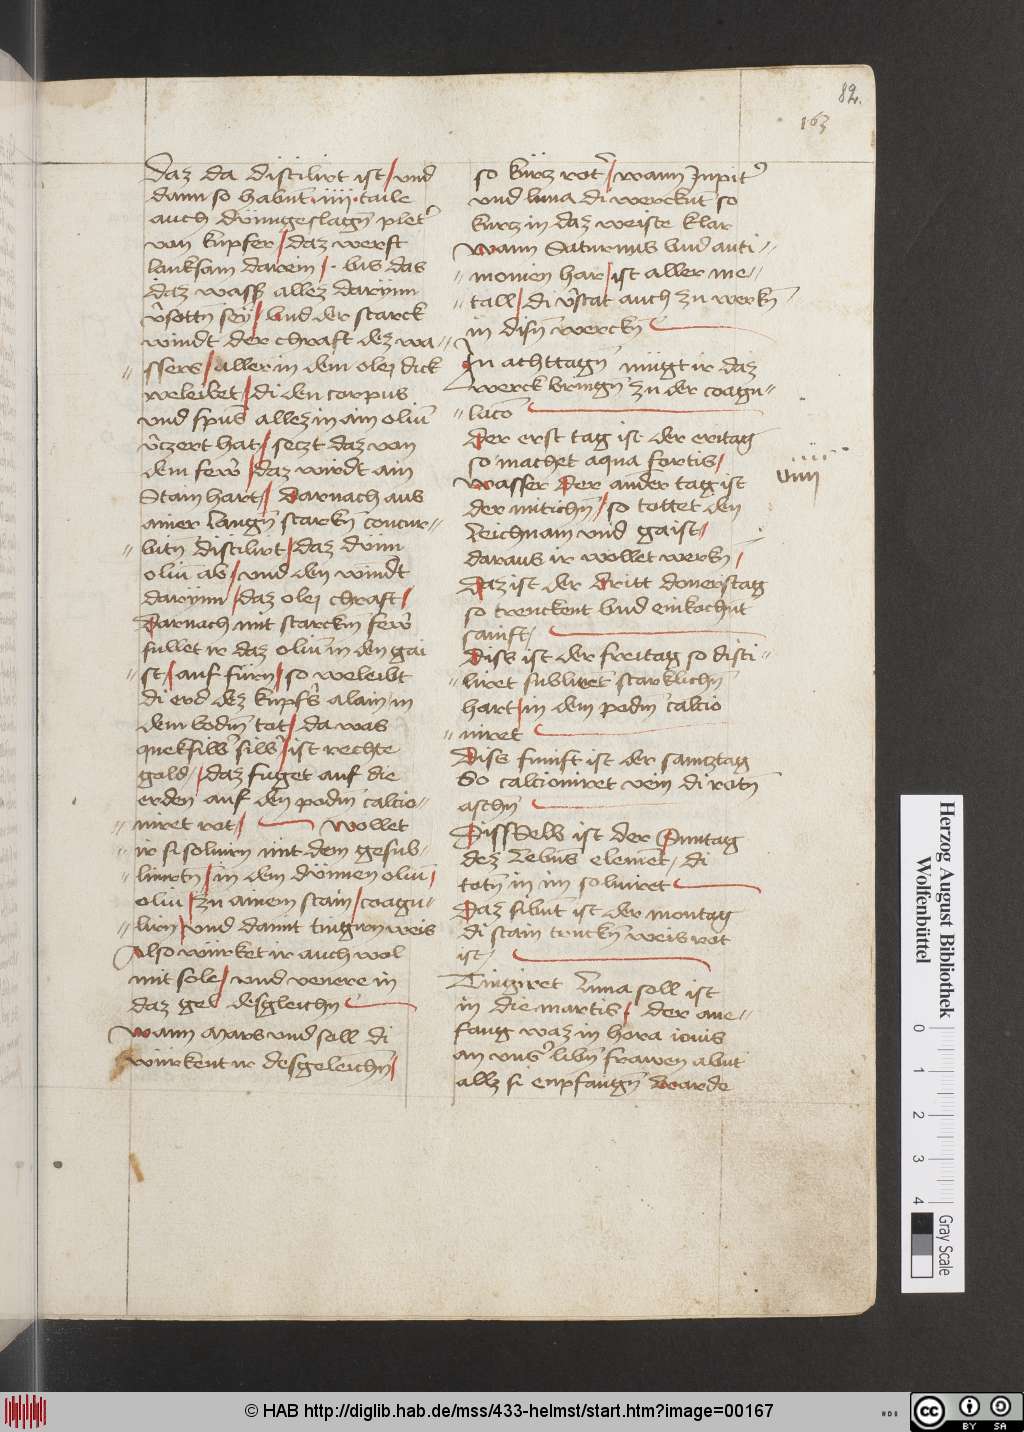 82.
163
daz da distilirt ist / vnd
dann so habnt · iiii · taile
auch dünngeslagn pletʼ
von kupfer / daz werft
lanksam darein / · bis das
daz wassʼ allez darynn
vʼsottn sey / vnd der starck
windt der chraft dez wa=
=ssers / aller in dem olej dick
weleibet / di den corpus
vnd spūs allez in ain oliū
vʼczert hat / seczt daz von
dem fewr / daz wirdt ain
Stain hart / darnach aus
ainer langn starkn concur=
=bitn distilirt / daz dünn
oliū ab / vnd den windt
darynn / daz olej chraft /
Darnach mit starckm fewr
fullet ir daz oliū in den gai
=st / auf fürn / so weleibt
di erd dez kupfʼs alain in
dem bodm tot / da was
queksilbʼ silbʼ ist rechte
gold / daz fuget auf die
erden auf den podm calcio=
=niret rot / wollet
ir si soluirn mit dem gesub=
=limirtn / in dem dünnen oliū /
oliū / zu ainem stain / coagu=
=lirn / vnd damit tingirn weis
Also würket ir auch wol
mit sole / vnd venere in
daz gel desgleichn
Wann Mars vnd soll di
würkent ir desgeleichn /
so kürz rot / wann Jupitʼ
vnd luna di werckent so
kurz in daz weiste klar
Wann Saturnus vnd anti=
=monien har / ist aller me=
=tall / di vʼstat auch zu werkn
in disn werckn
In achttagn mügt ir daz
werck bringn zu der coagu=
=lacō
Der erst tag ist der eritag
so machet aqua fortis /
wasser Der ander tag ist
der mitichn / so tottet den
Leichnam vnd gaist /
daraus ir wollet werkn /
iiii
viiii
Daz ist der dritt donerstag
so trenckent vnd einkochnt
sanft /
Diss ist der freitag so disti=
=liret sublitet starklichn
hart / in dem podm calcio
=niret
Diss funft ist der samcztag
So calcioniret vein di rotn
aschn
Diss Selb ist der Suntag
dez Lebns element / di
totn in im soluiret
Daz sibnt ist der montag
di stain truckn weis rot
ist /
Tingiret Luna soll ist
in die martis / der ane=
fang waz in hora iouis
an vnsʼ libn frawen abnt
allz si enpfangn warde
Herzog August Bibliothek
Wolfenbüttel
0 1 2 3 4
Gray Scale
© HAB http://diglib.hab.de/mss/433-helmst/start.htm?image=00167
HAB
cc BY SA